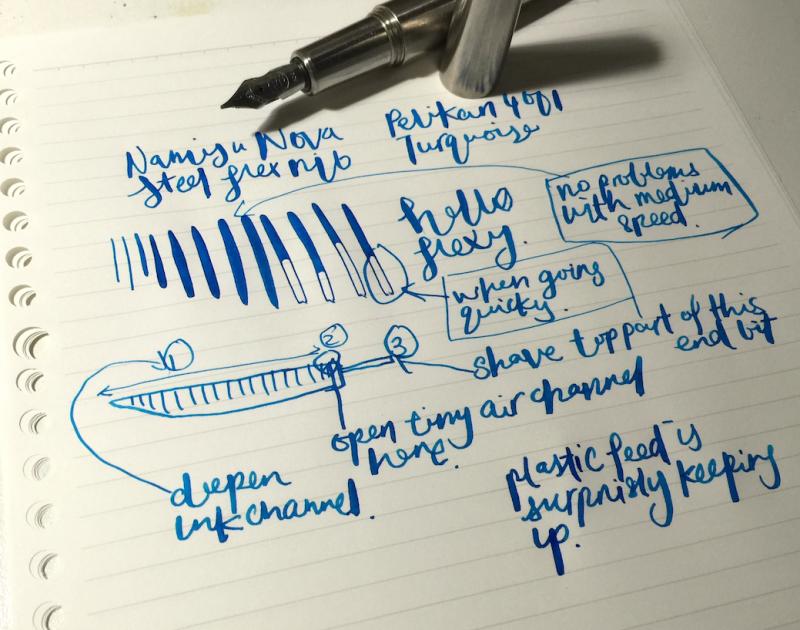 Namisu Nova
steel flex nib
Pelikan 4001
Turquoise
hello
flexy.
no problems
with medium
speed.
when going
quicky.
1
2
3
shave top part of this
end bit
open tiny air channel
here.
deepen
ink channel.
plastic feed is
surprisly keeping
up.